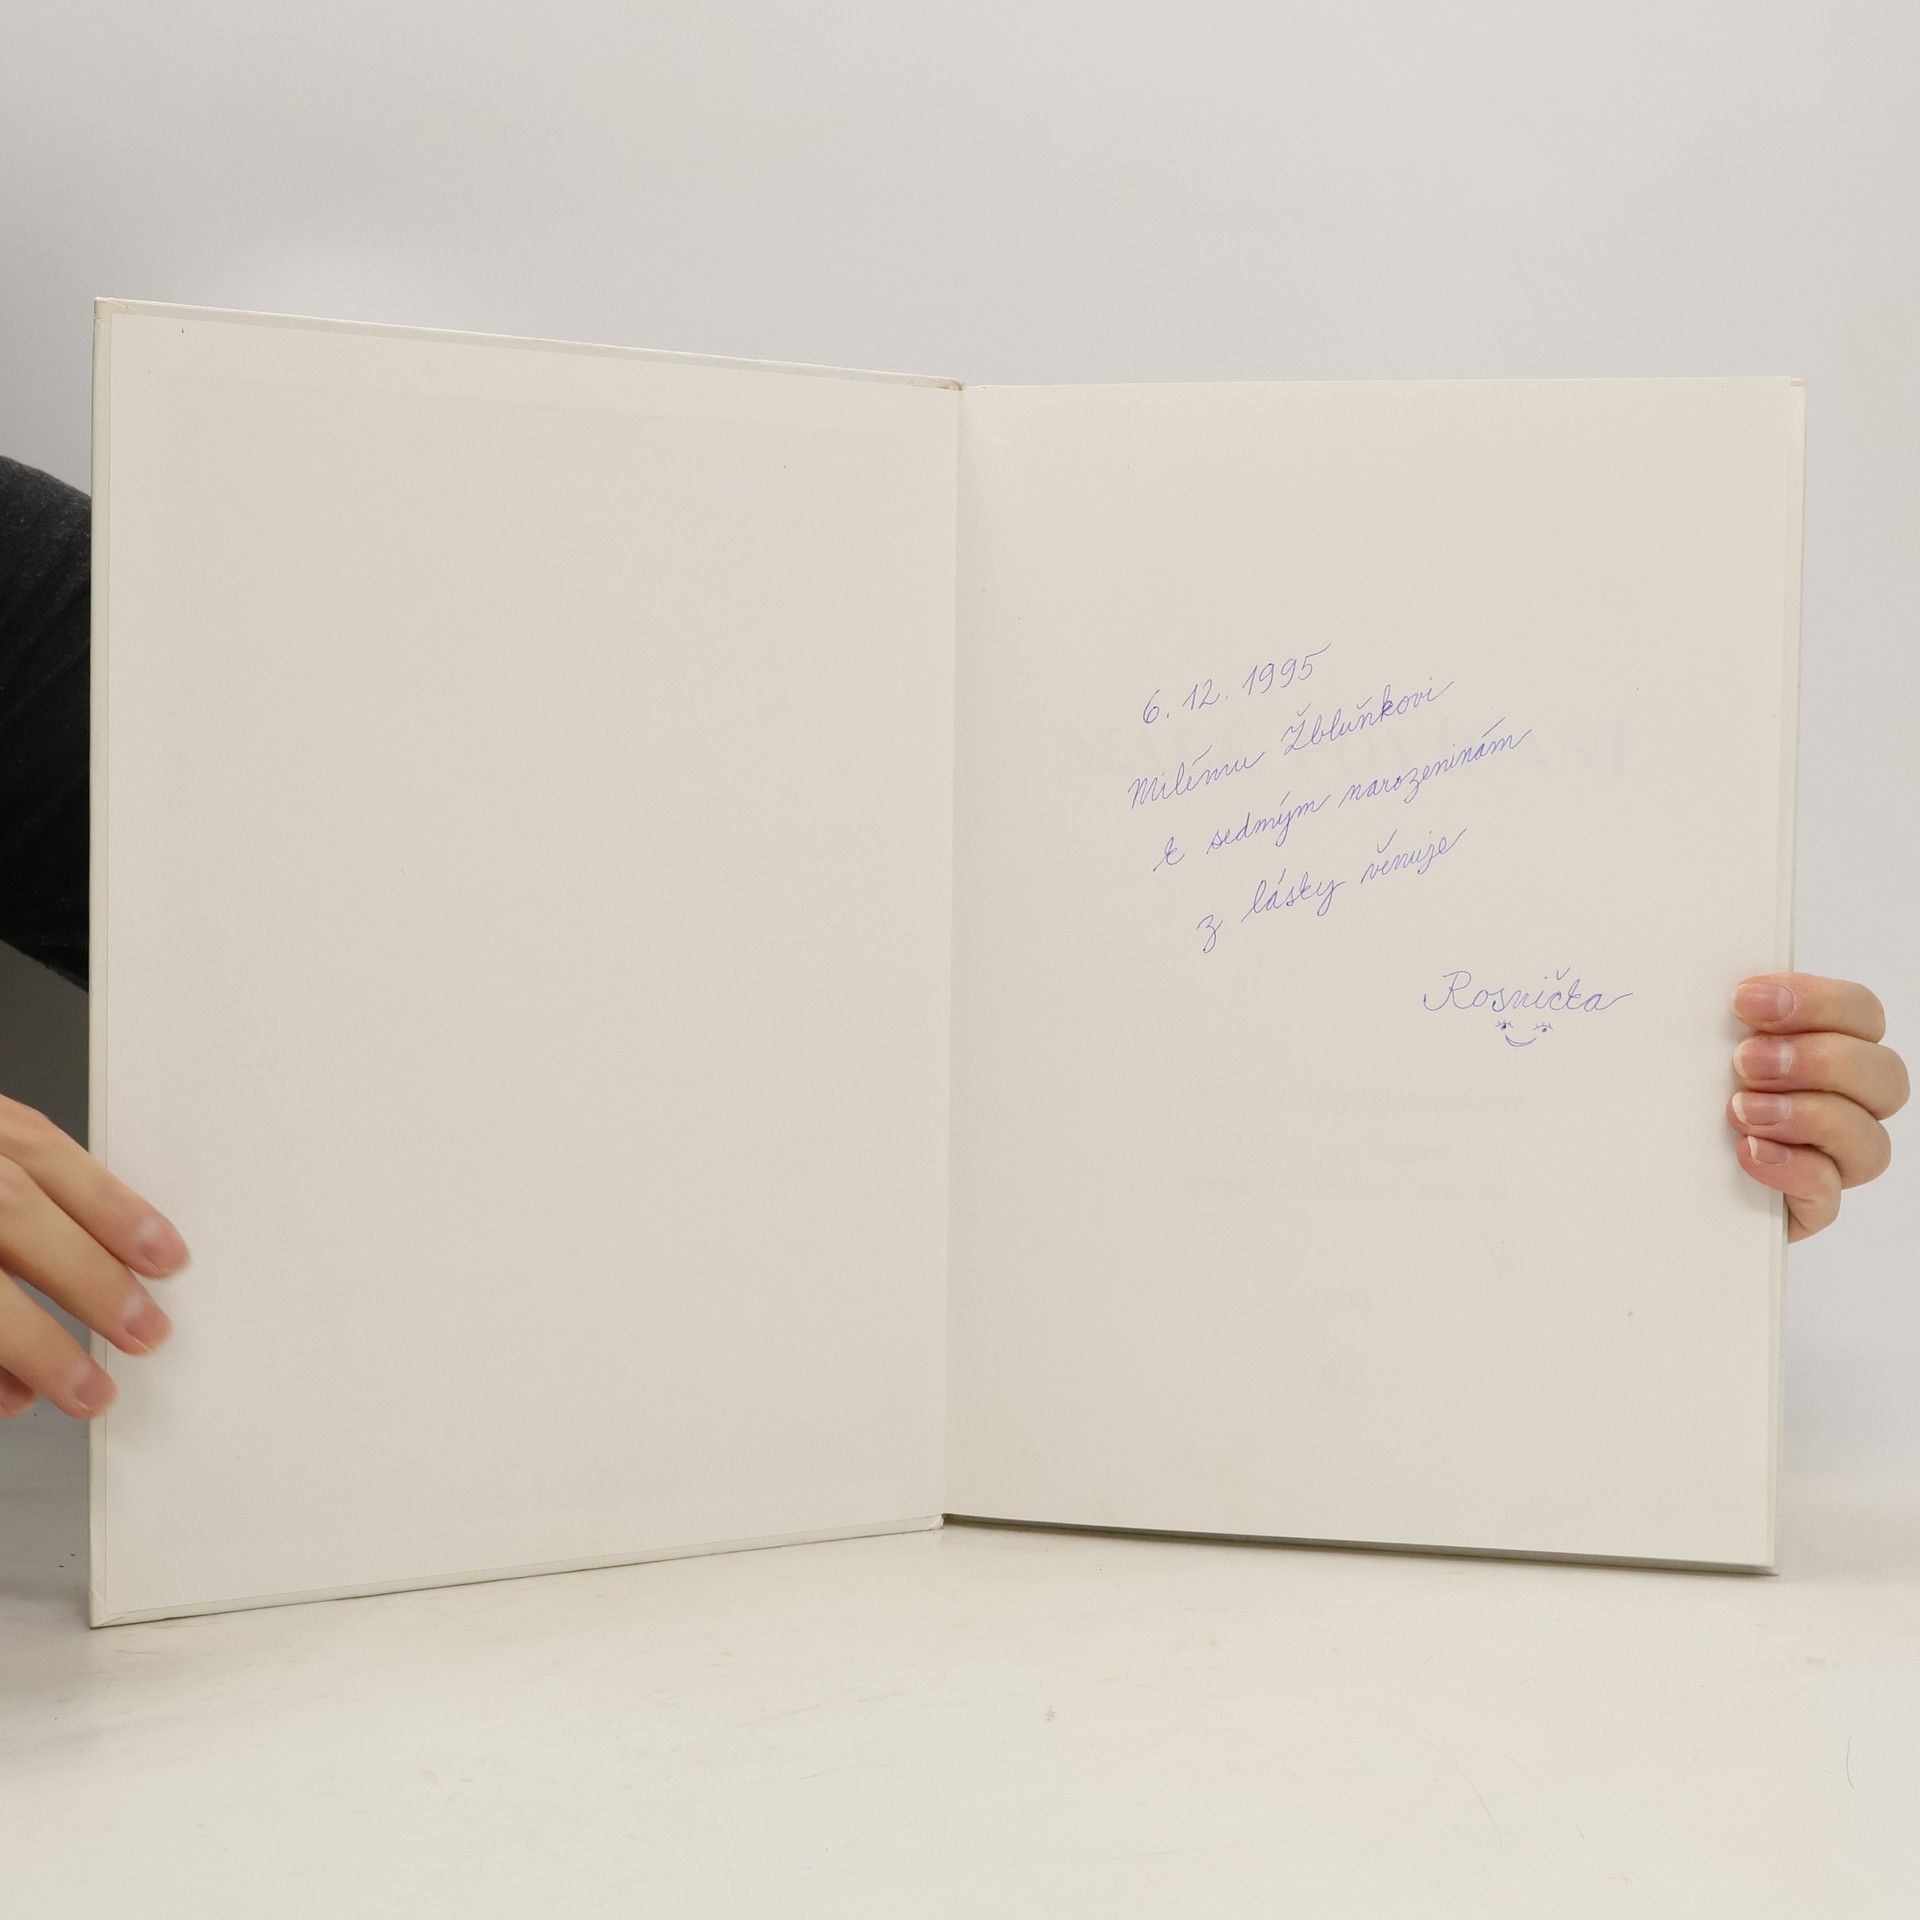 6. 12. 1995
Milému Žbluňkovi
k sedmým narozeninám
z lásky věnuje
Rosnička